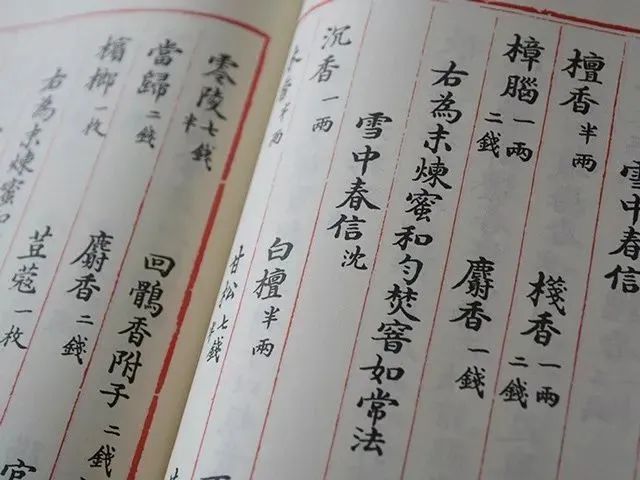 雪中春信
檀香半兩 棧香一兩二錢
樟腦一兩二錢 麝香一錢
右為末煉蜜和勻焚窨如常法
雪中春信沈
沉香一兩 白檀半兩
木香半兩 甘松七錢半
零陵七錢半 回鶻香附子二錢
當歸二錢 麝香二錢 官
檳榔一枚 荳蔻一枚
右為末煉蜜和